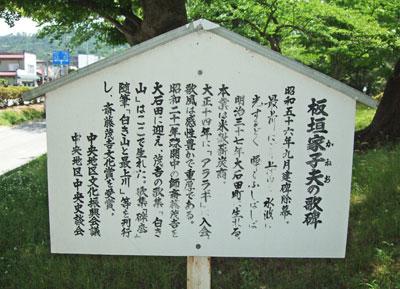 板垣家子夫の歌碑
かねお
昭和五十六年九月建碑除幕。
最上川に
光するどく
明治三十七年大石田町に生れる。
本業は米穀蕎麦商。
大正十四年に「アララギ」へ入会、
歌風は感性豊かで重厚である。
昭和二十一年疎開中の師斎藤茂吉を
大石田に迎え、茂吉の歌集「白き
山」はここで生れた。歌集「礫底」
随筆「白き山と最上川」等を刊行
し、斎藤茂吉文化賞を受賞。
中央地区文化振興会議
中央地区中央史談会